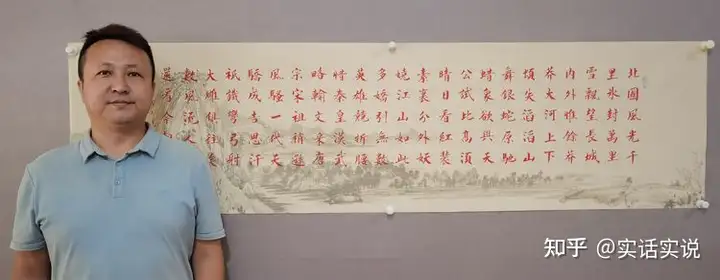 北國風光千
里冰封萬里
雪飄望長城
內外惟餘莽
莽大河上下
頓失滔滔山
舞銀蛇原馳
蜡象欲與天
公試比高須
晴日看紅裝
素裹分外妖
嬈江山如此
多嬌引無數
英雄競折腰
惜秦皇漢武
略輸文采唐
宗宋祖稍遜
風騷一代天
驕成吉思汗
祇識彎弓射
大雕俱往矣
數風流人
還看今
知乎 @实话实说